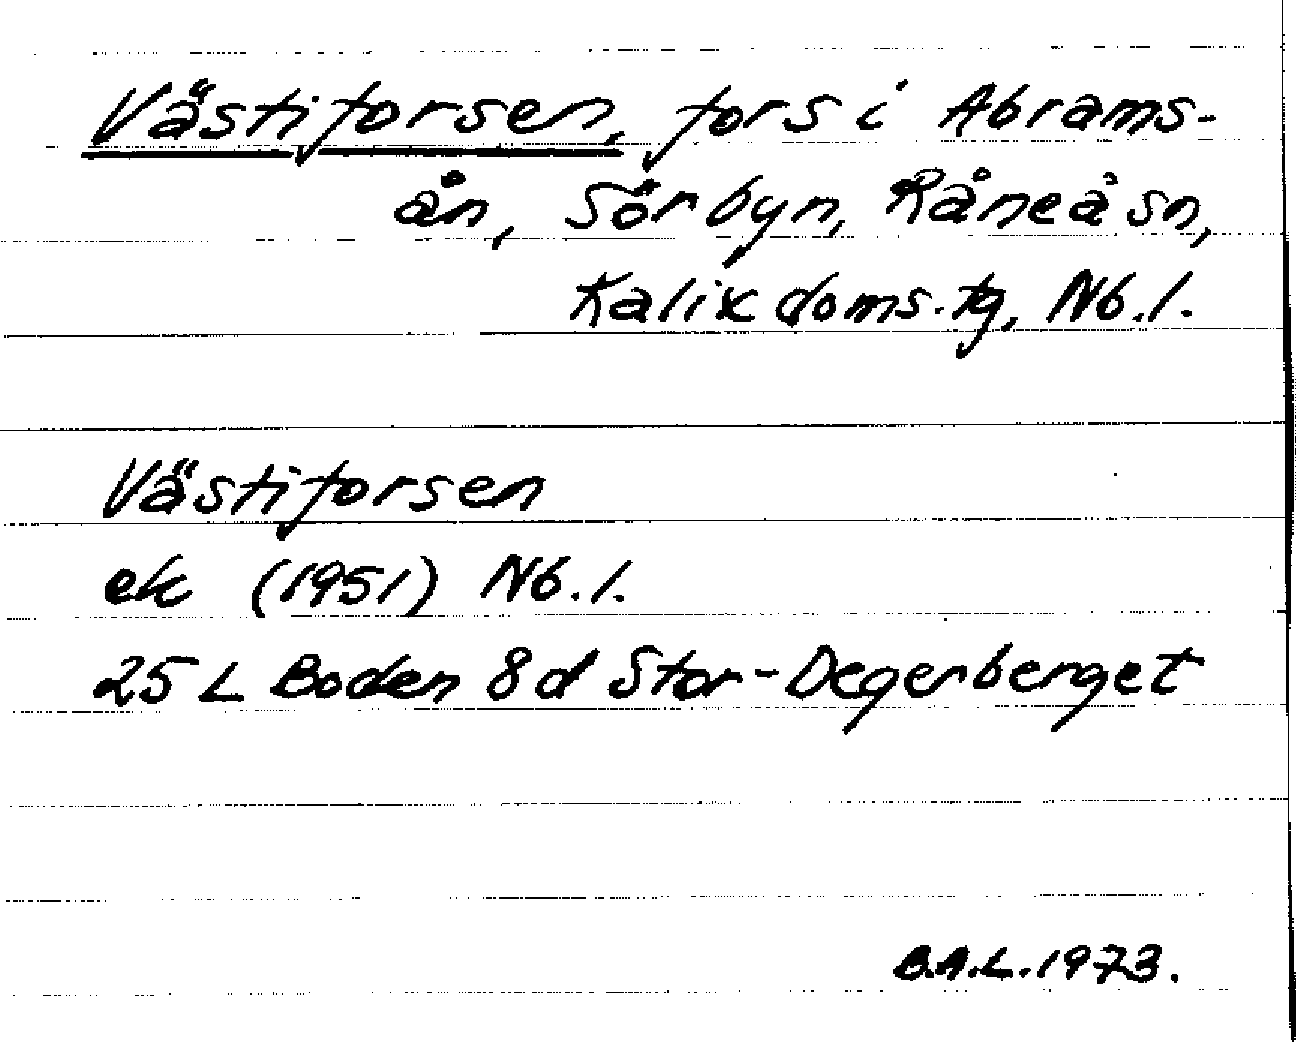 Västiforsen, fors i Abrams-
ån, Sörbyn, Råneå sn,
Kalix doms.tg, Nb.l.
Västiforsen
ek (1951) Nb.l.
25 L Boden 8d Stor-Degerberget
B.A.L.1973.